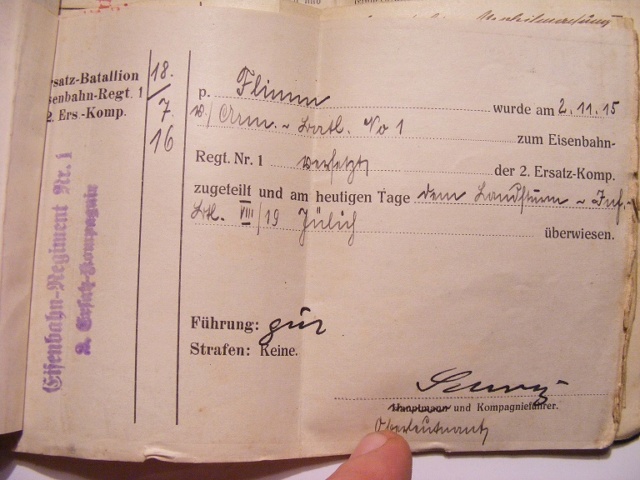 Ersatz-Batallion
Eisenbahn-Regt. 1
2. Ers.-Komp.
18.
7.
16
Eisenbahn-Regiment Nr. 1
2. Ersatz-Kompagnie
p. Flimm wurde am 2.11.15
v./ Arm.-Batl. No 1 zum Eisenbahn-
Regt. Nr. 1 versetzt der 2. Ersatz-Komp.
zugeteilt und am heutigen Tage dem Landsturm-Inf.-
Btl. VIII/19 Jülich überwiesen.
Führung: gut
Strafen: Keine.
Hauptmann und Kompagnieführer.
Oberleutnant